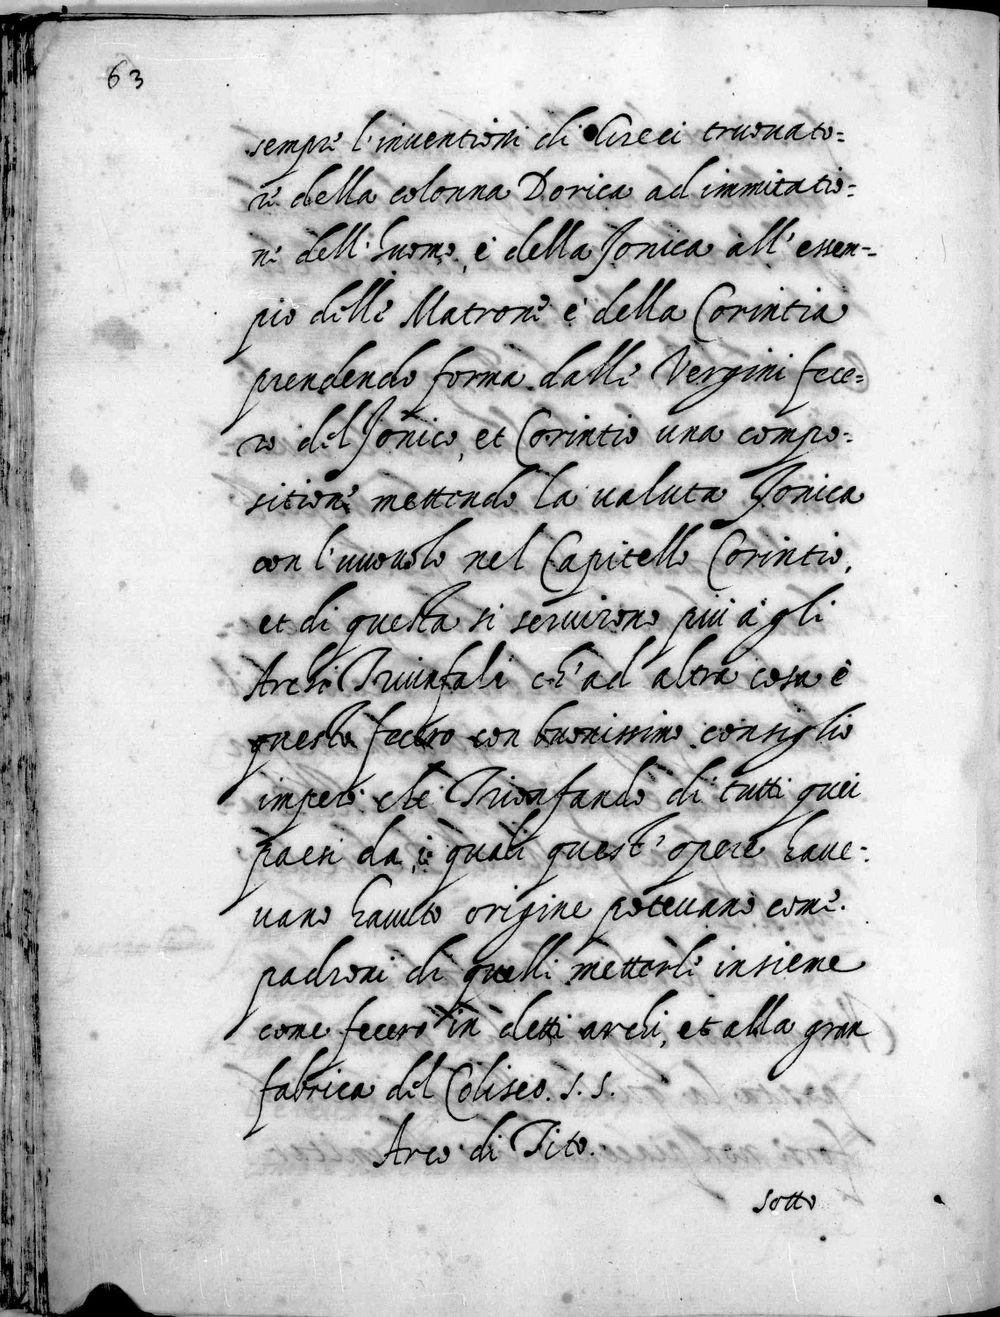 63
sempre l'inuentioni di Greci truouato=
re della colonna Dorica ad immitatio=
ne dell'huomo, è della Jonica all'essem=
pio delle Matrone è della Corintia
prendendo forma dalle Vergini fece=
ro del Jonico, et Corintio una compo=
sitione mettendo la ualuta Jonica
con l'uuouolo nel Capitello Corintio,
et di questa si seruirono più à gli
Archi Triunfali ch'ad altra cosa è
questo fecero con buonissimo consiglio
imperò che Trionfando di tutti quei
paesi da, i quali quest'opere haue=
uano hauuto origine poteuano come
padroni di quelli metterle insieme
come fecero in detti archi, et alla gran
fabrica del Coliseo. S. S.
Arco di Tito.
sotto